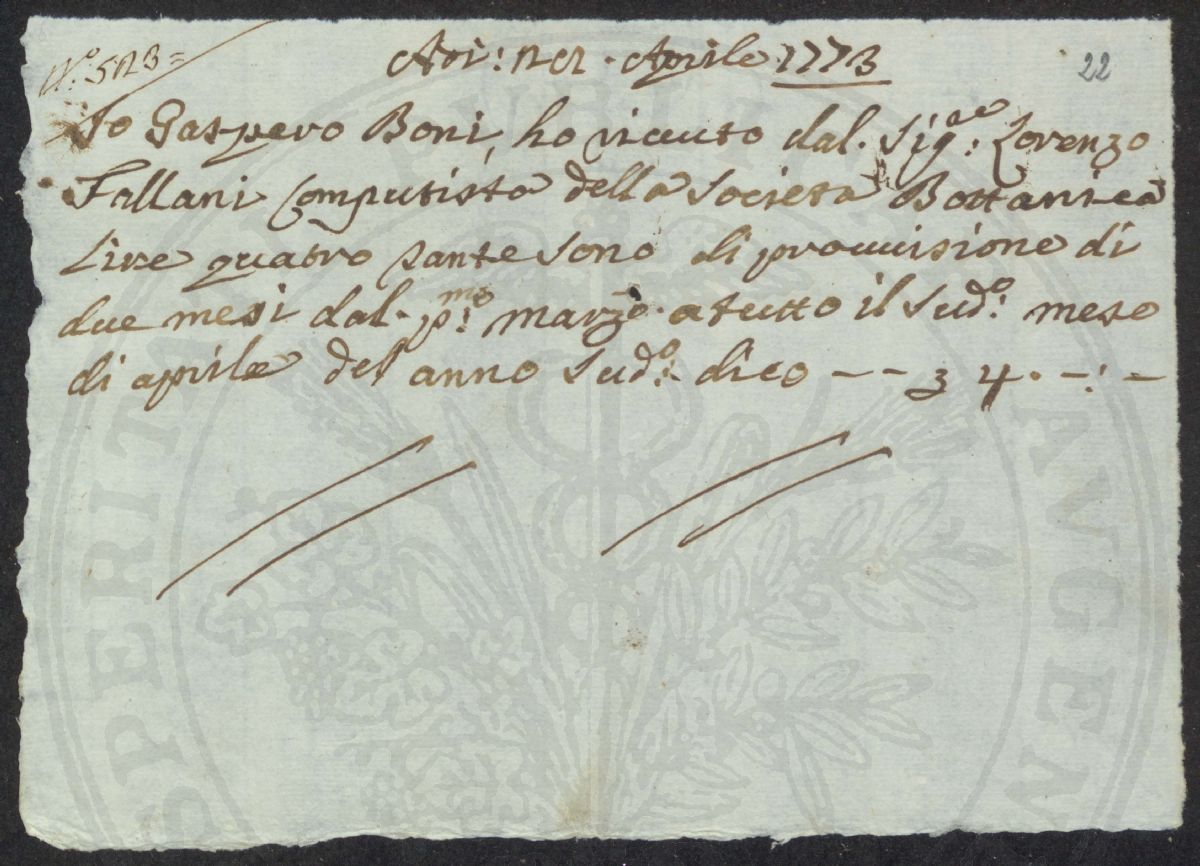 N.° 523 =
Adi: Aprile 1773 22
Io Gaspero Boni, ho riceuto dal. Sig.re: Lorenzo
Fallani Computista della Società Bottanica
Lire quatro tante sono di prouuisione di
due mesi dal. p.mo: marzo. a tutto il Sud.o: mese
di aprile del anno Sud.o: dico -- 3 4. -:-